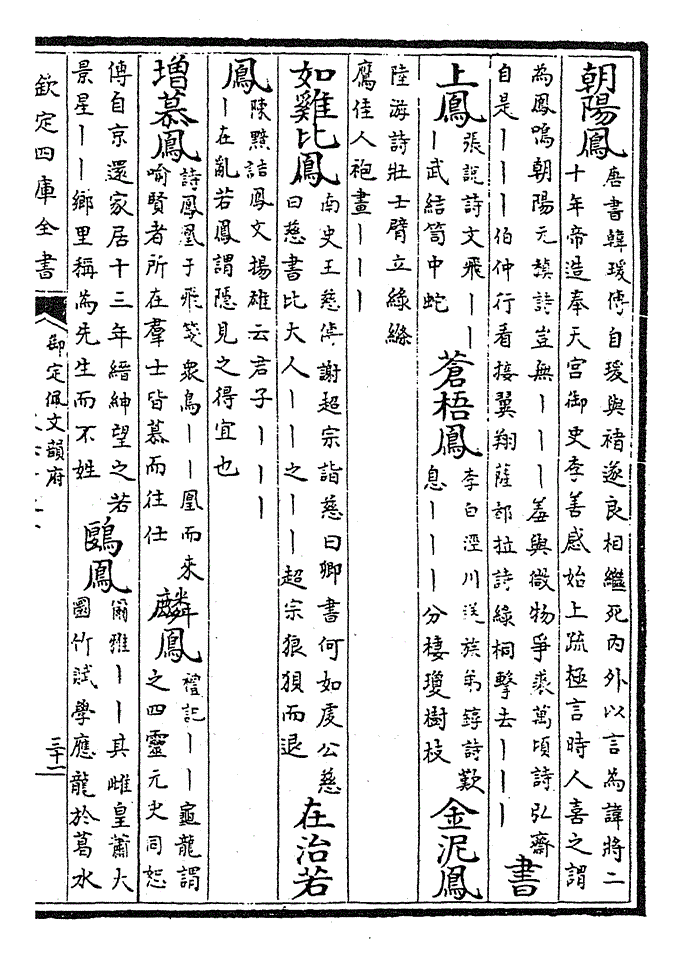 朝陽鳳
唐書韓瑗傳自瑗與禇遂良相繼死内外以言為諱將二
十年帝造奉天宮御史李善感始上疏極言時人喜之謂
為鳳鳴朝陽元稹詩豈無丨丨丨羞與微物爭裘萬頃詩弘齋
自是丨丨丨伯仲行看接翼翔薩都拉詩綠桐擊去丨丨丨
書
上鳳
張説詩文飛丨丨
丨武結笥中蛇
蒼梧鳳
李白涇川送族弟錞詩歎
息丨丨丨分棲瓊樹枝
金泥鳳
陸游詩壯士臂立綠絛
鷹佳人袍畫丨丨丨
如雞比鳳
南史王慈傳謝超宗詣慈曰卿書何如虔公慈
曰慈書比大人丨丨之丨丨超宗狼狽而退
在治若
鳳
陳黯詰鳳文揚雄云君子丨丨丨
丨在亂若鳳謂隱見之得宜也
増慕鳳
詩鳳凰于飛箋衆鳥丨丨凰而來
喻賢者所在羣士皆慕而往仕
麟鳳
禮記丨丨龜龍謂
之四靈元史同恕
傳自京還家居十三年縉紳望之若
景星丨丨鄉里稱為先生而不姓
鶠鳳
爾雅丨丨其雌皇蕭大
圜竹賦學應龍於葛水
欽定四庫全書
御定佩文韻府
三十二